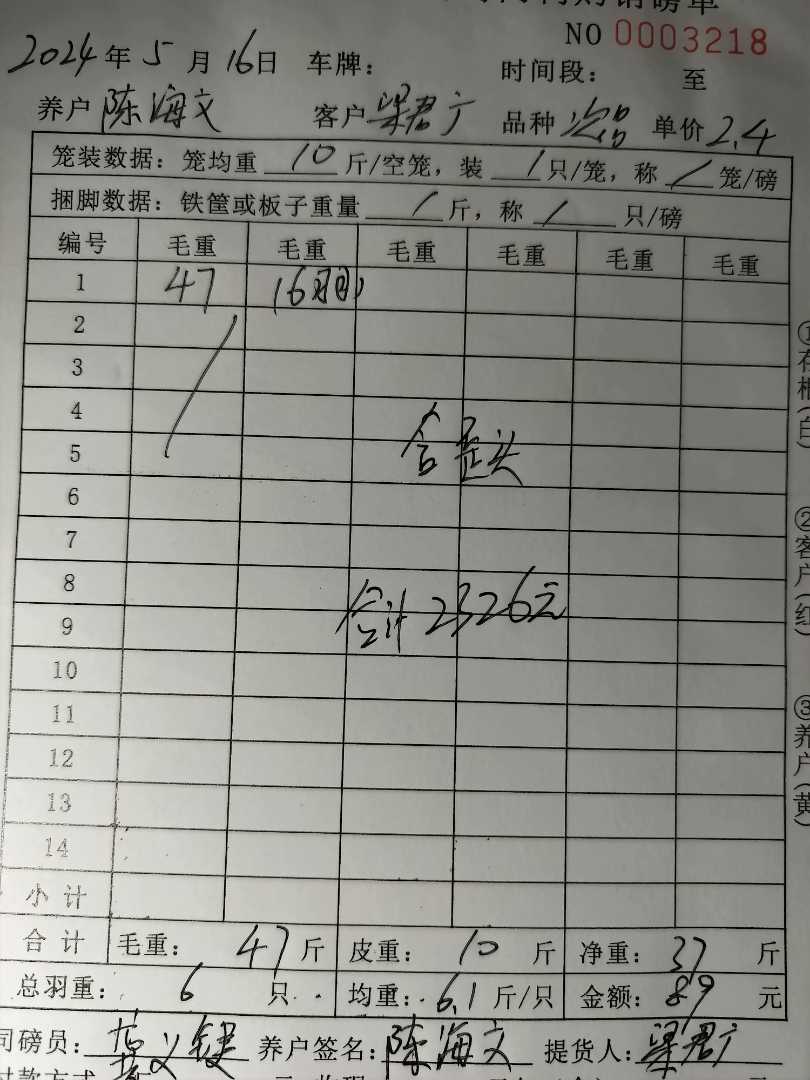 销磅单
NO 0003218
2024年5月16日 车牌: 时间段: 至
养户 陈海文 客户 梁君广 品种 次品 单价 2.4
笼装数据: 笼均重 10 斤/空笼, 装 1 只/笼, 称 / 笼/磅
捆脚数据: 铁筐或板子重量 / 斤, 称 / 只/磅
编号 毛重 毛重 毛重 毛重 毛重 毛重
1 47
2
3
4
5 含歪头
6
7
8
9 合计2326元
10
11
12
13
14
小计
合计 毛重: 47 斤 皮重: 10 斤 净重: 37 斤
总羽重: 6 只 均重: 6.1 斤/只 金额: 89 元
司磅员: 养户签名: 陈海文 提货人: 梁君广
付款方式
①存根(白)
②客户(红)
③养户(黄)